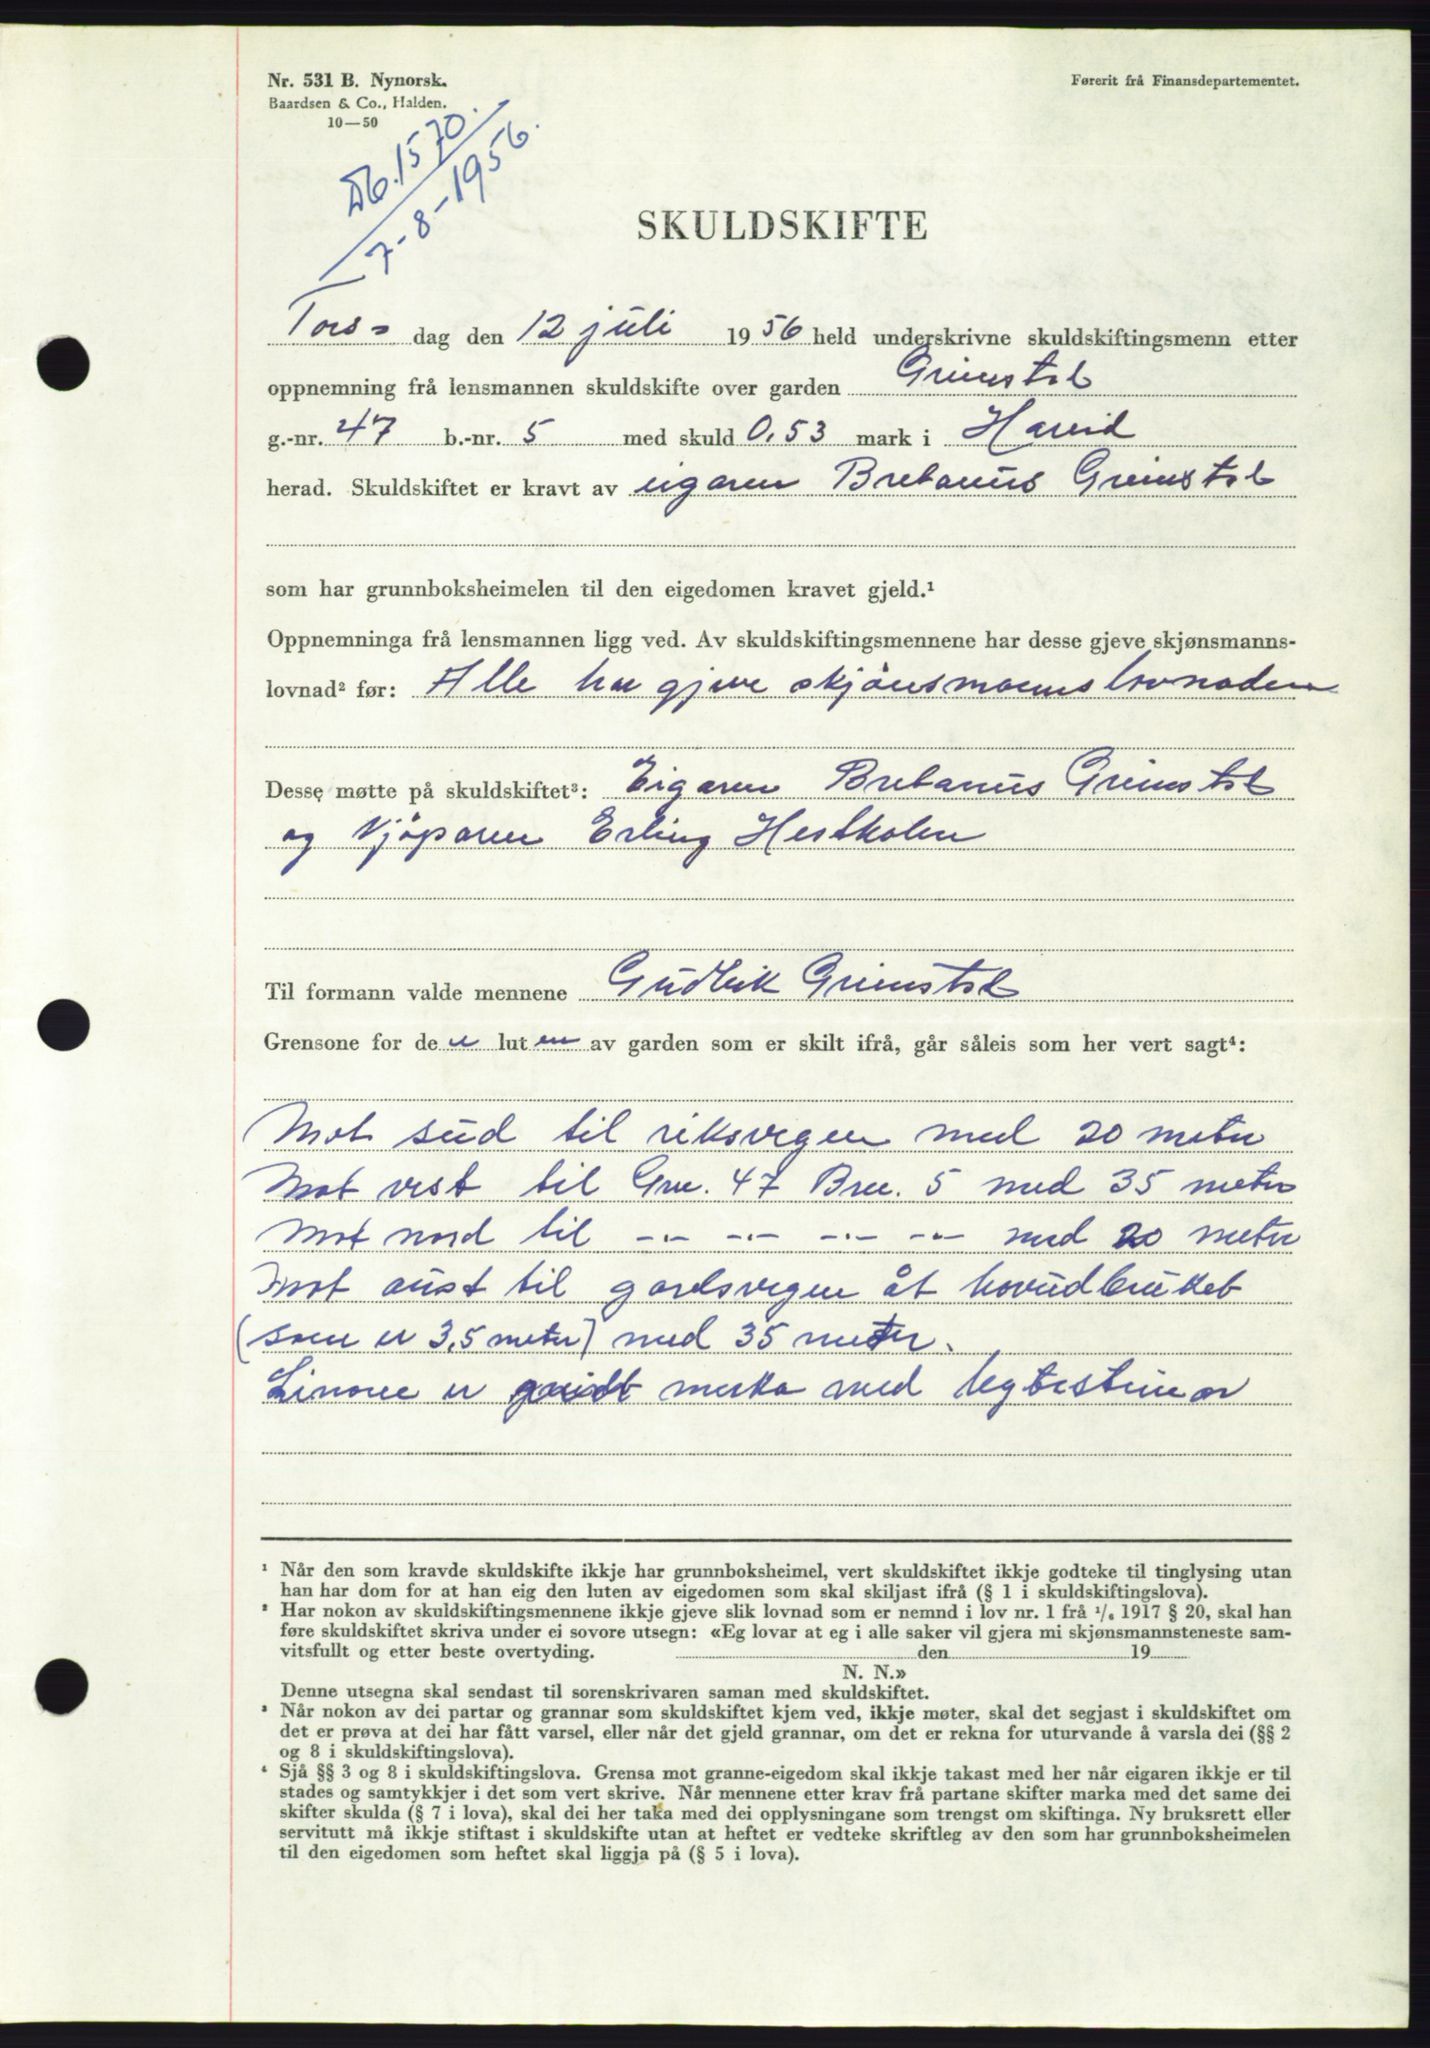 Nr. 531 B. Nynorsk.
Baardsen & Co., Halden.
10—50
Førerit frå Finansdepartementet.
Db. 1570.
7-8-1956.
SKULDSKIFTE
Tors- dag den 12 juli 1956 held underskrivne skuldskiftingsmenn etter
oppnemning frå lensmannen skuldskifte over garden Grimstad
g.-nr. 47 b.-nr. 5 med skuld 0,53 mark i Hareid
herad. Skuldskiftet er kravt av eigaren Bretanus Grimstad
som har grunnboksheimelen til den eigedomen kravet gjeld.¹
Oppnemninga frå lensmannen ligg ved. Av skuldskiftingsmennene har desse gjeve skjønsmanns-
lovnad² før: Alle har gjeve skjönsmannslovnaden
Desse møtte på skuldskiftet³: Eigaren Bretanus Grimstad
og kjöparen Erling Hestholm
Til formann valde mennene Gudleik Grimstad
Grensone for den luten av garden som er skilt ifrå, går såleis som her vert sagt⁴:
Mot sud til riksvegen med 20 meter
Mot vest til Gnr. 47 Bnr. 5 med 35 meter
Mot nord til -·- -·- -·- -·- med 20 meter
Mot aust til gardsvegen åt hovudbruket
(som er 3,5 meter) med 35 meter.
Linone er merka med lygtesteinar
¹ Når den som kravde skuldskifte ikkje har grunnboksheimel, vert skuldskiftet ikkje godteke til tinglysing utan
han har dom for at han eig den luten av eigedomen som skal skiljast ifrå (§ 1 i skuldskiftingslova).
² Har nokon av skuldskiftingsmennene ikkje gjeve slik lovnad som er nemnd i lov nr. 1 frå ¹/₆ 1917 § 20, skal han
føre skuldskiftet skriva under ei sovore utsegn: «Eg lovar at eg i alle saker vil gjera mi skjønsmannsteneste sam-
vitsfullt og etter beste overtyding. den 19
N. N.»
Denne utsegna skal sendast til sorenskrivaren saman med skuldskiftet.
³ Når nokon av dei partar og grannar som skuldskiftet kjem ved, ikkje møter, skal det segjast i skuldskiftet om
det er prøva at dei har fått varsel, eller når det gjeld grannar, om det er rekna for uturvande å varsla dei (§§ 2
og 8 i skuldskiftingslova).
⁴ Sjå §§ 3 og 8 i skuldskiftingslova. Grensa mot granne-eigedom skal ikkje takast med her når eigaren ikkje er til
stades og samtykkjer i det som vert skrive. Når mennene etter krav frå partane skifter marka med det same dei
skifter skulda (§ 7 i lova), skal dei her taka med dei opplysningane som trengst om skiftinga. Ny bruksrett eller
servitutt må ikkje stiftast i skuldskifte utan at heftet er vedteke skriftleg av den som har grunnboksheimelen
til den eigedomen som heftet skal liggja på (§ 5 i lova).